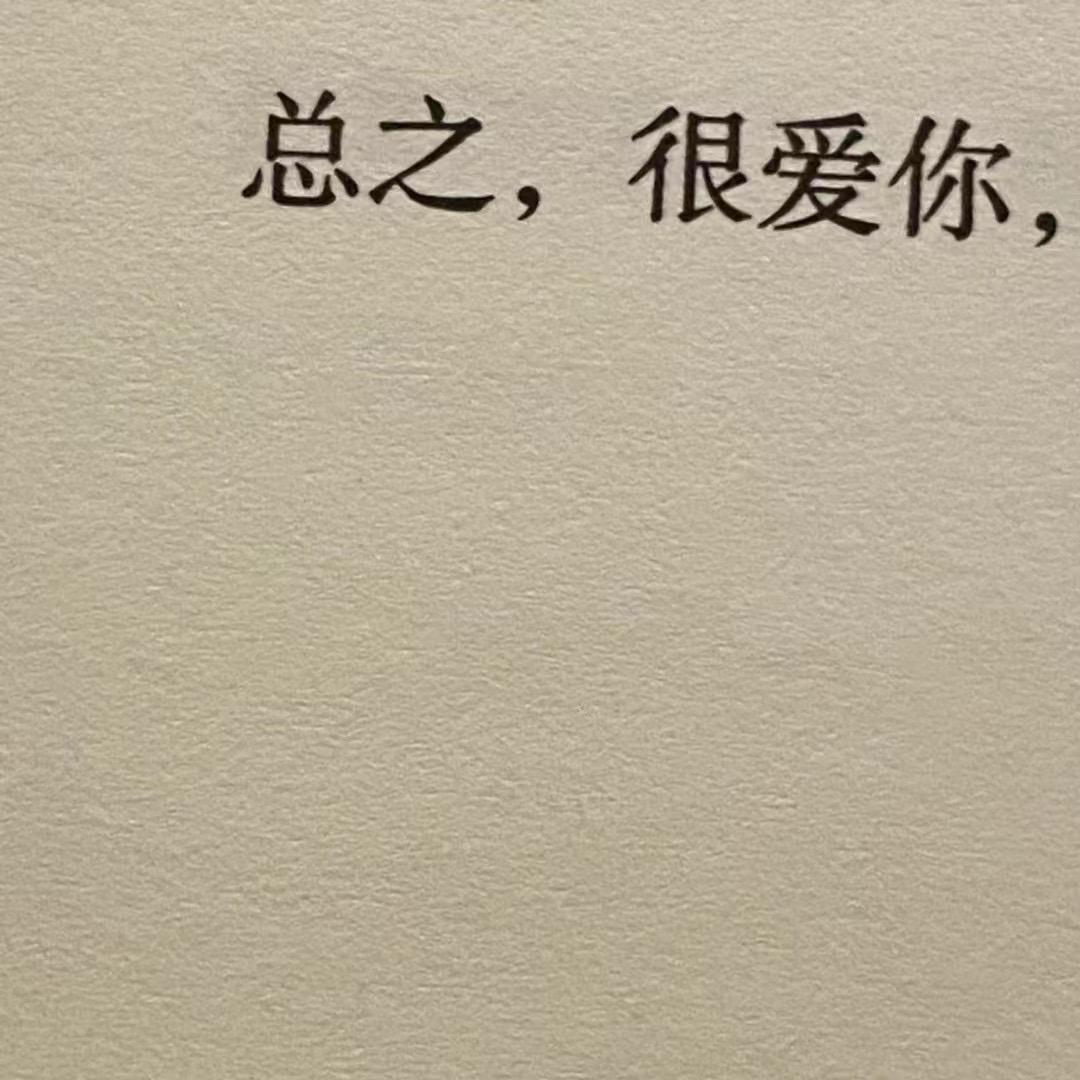 总之，很爱你，